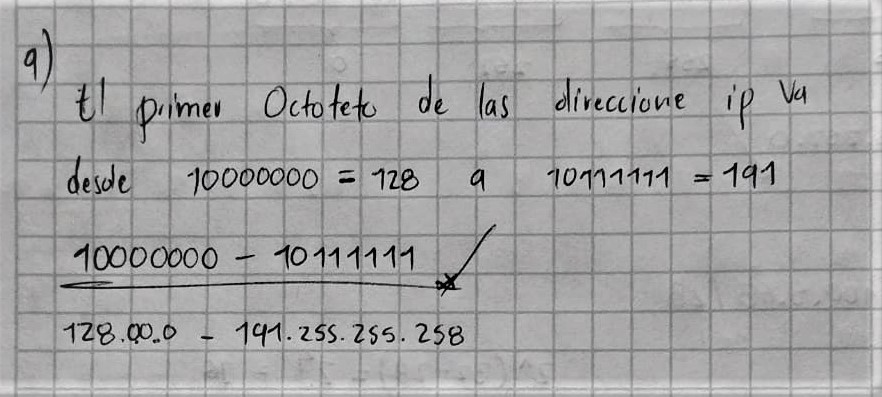 a)
El primer Octoteto de las direccione ip va
desde 10000000 = 128 a 10111111 = 191
10000000 - 10111111
128.00.0 - 191.255.255.258